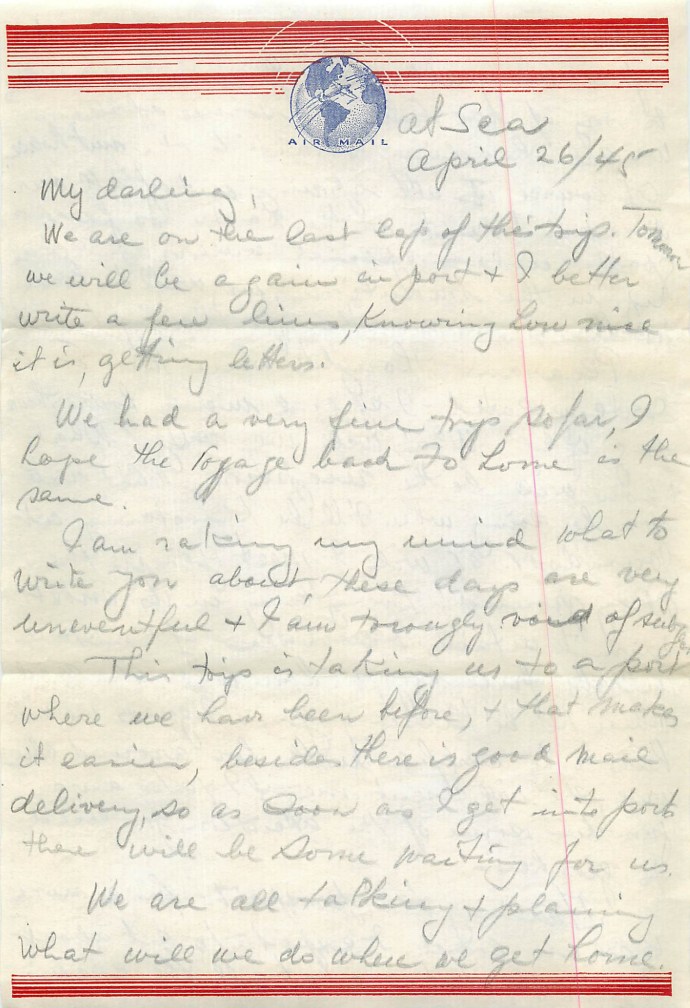 AIR MAIL
at Sea
April 26/45
My darling,
We are on the last lap of this trip. Tomorrow
we will be again in port + I better
write a few lines, Knowing how nice
it is, getting letters.
We had a very fine trip so far, I
hope the Vogage back to home is the
same.
I am raking my mind what to
write you about, these days are very
uneventful + I am trougly void of
This trip is taking us to a port
where we have been before, + that makes
it easier, besides there is good mail
delivery, so as soon as I get into port
there will be some waiting for us.
We are all talking + planing
what will we do when we get home.